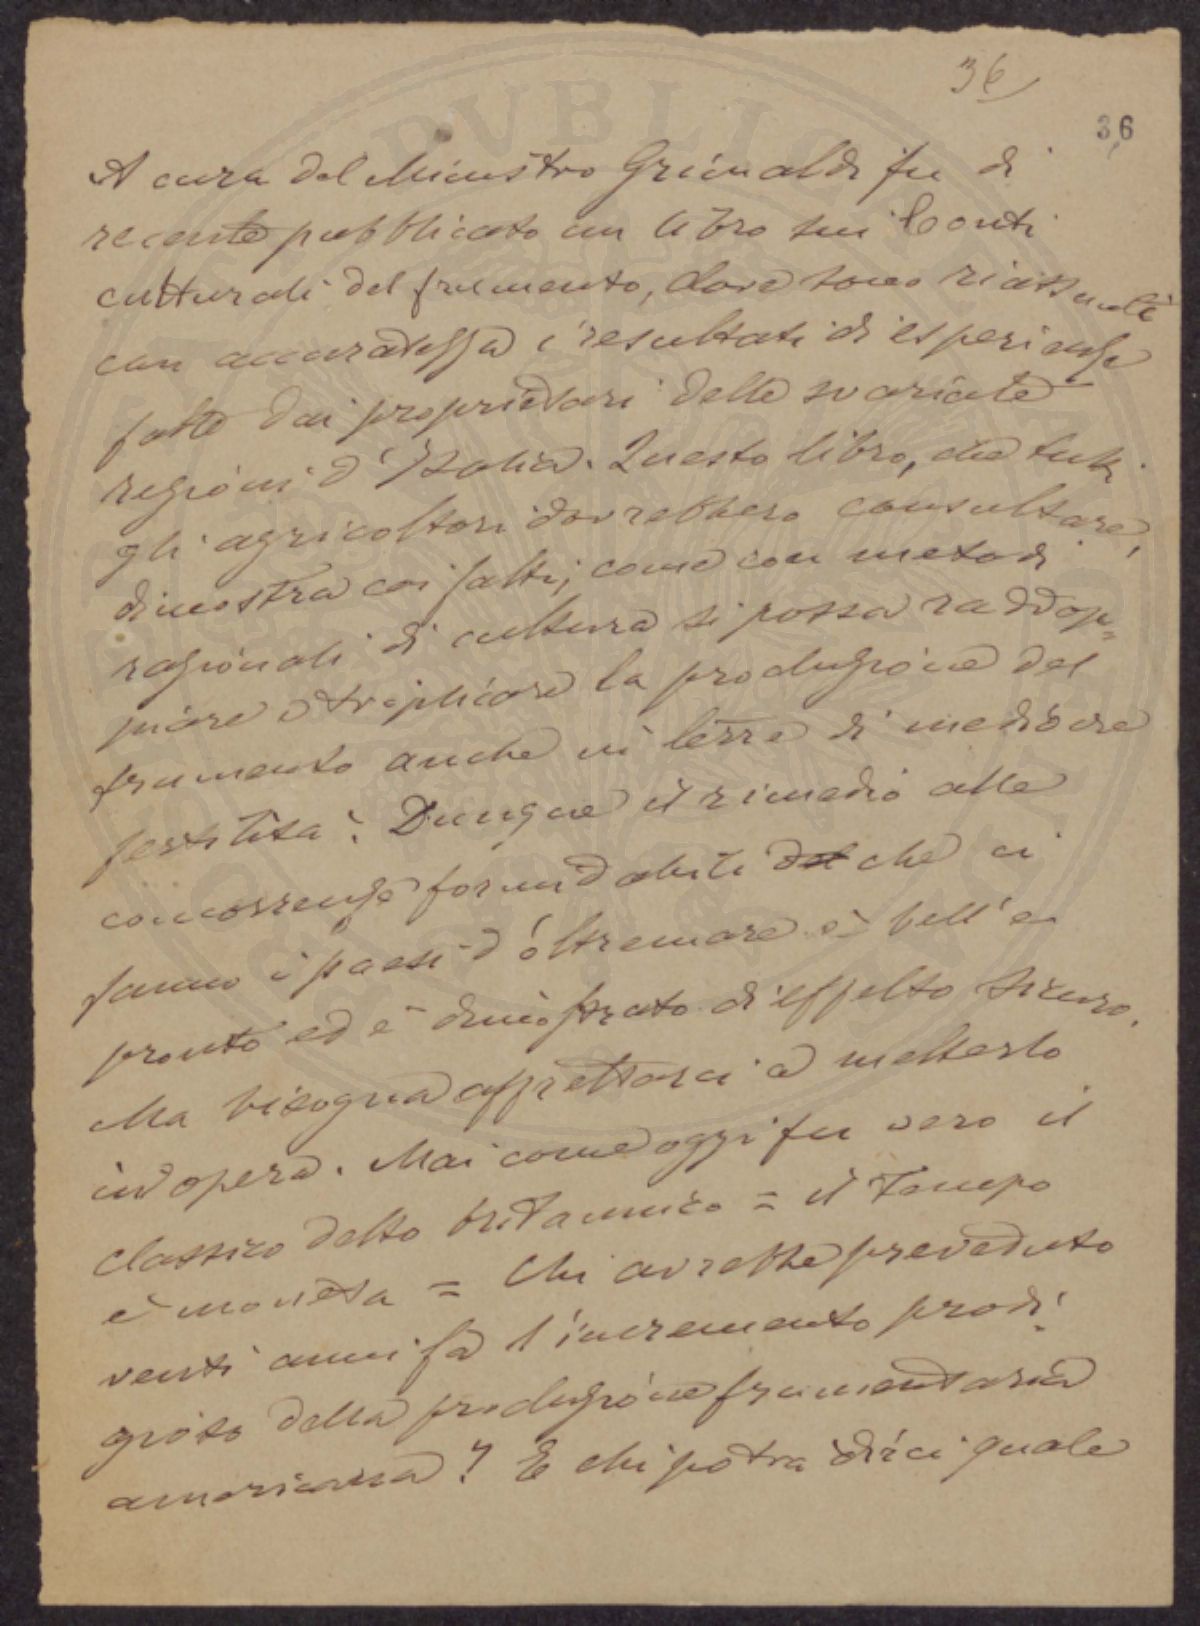 36
36
A cura del Ministro Grimaldi fu di
recente pubblicato un libro sui Conti
culturali del frumento, dove sono riassunti
con accuratezza i resultati di esperienze
fatte dai proprietari delle svariate
regioni d'Italia. Questo libro, che tutti
gli agricoltori dovrebbero consultare,
dimostra coi fatti, come con metodi
razionali di cultura si possa raddop=
piare o triplicare la produzione del
frumento anche in terre di mediocre
fertilità. Dunque il rimedio alle
concorrenze formidabili del che ci
fanno i paesi d'oltremare è bell'e
pronto ed è dimostrato di effetto sicuro.
Ma bisogna affrettarci a metterlo
in opera. Mai come oggi fu vero il
classico detto britannico = il tempo
è moneta = Chi avrebbe preveduto
venti anni fa l'incremento prodi=
gioso della produzione frumentaria
americana? E chi potra dirci quale